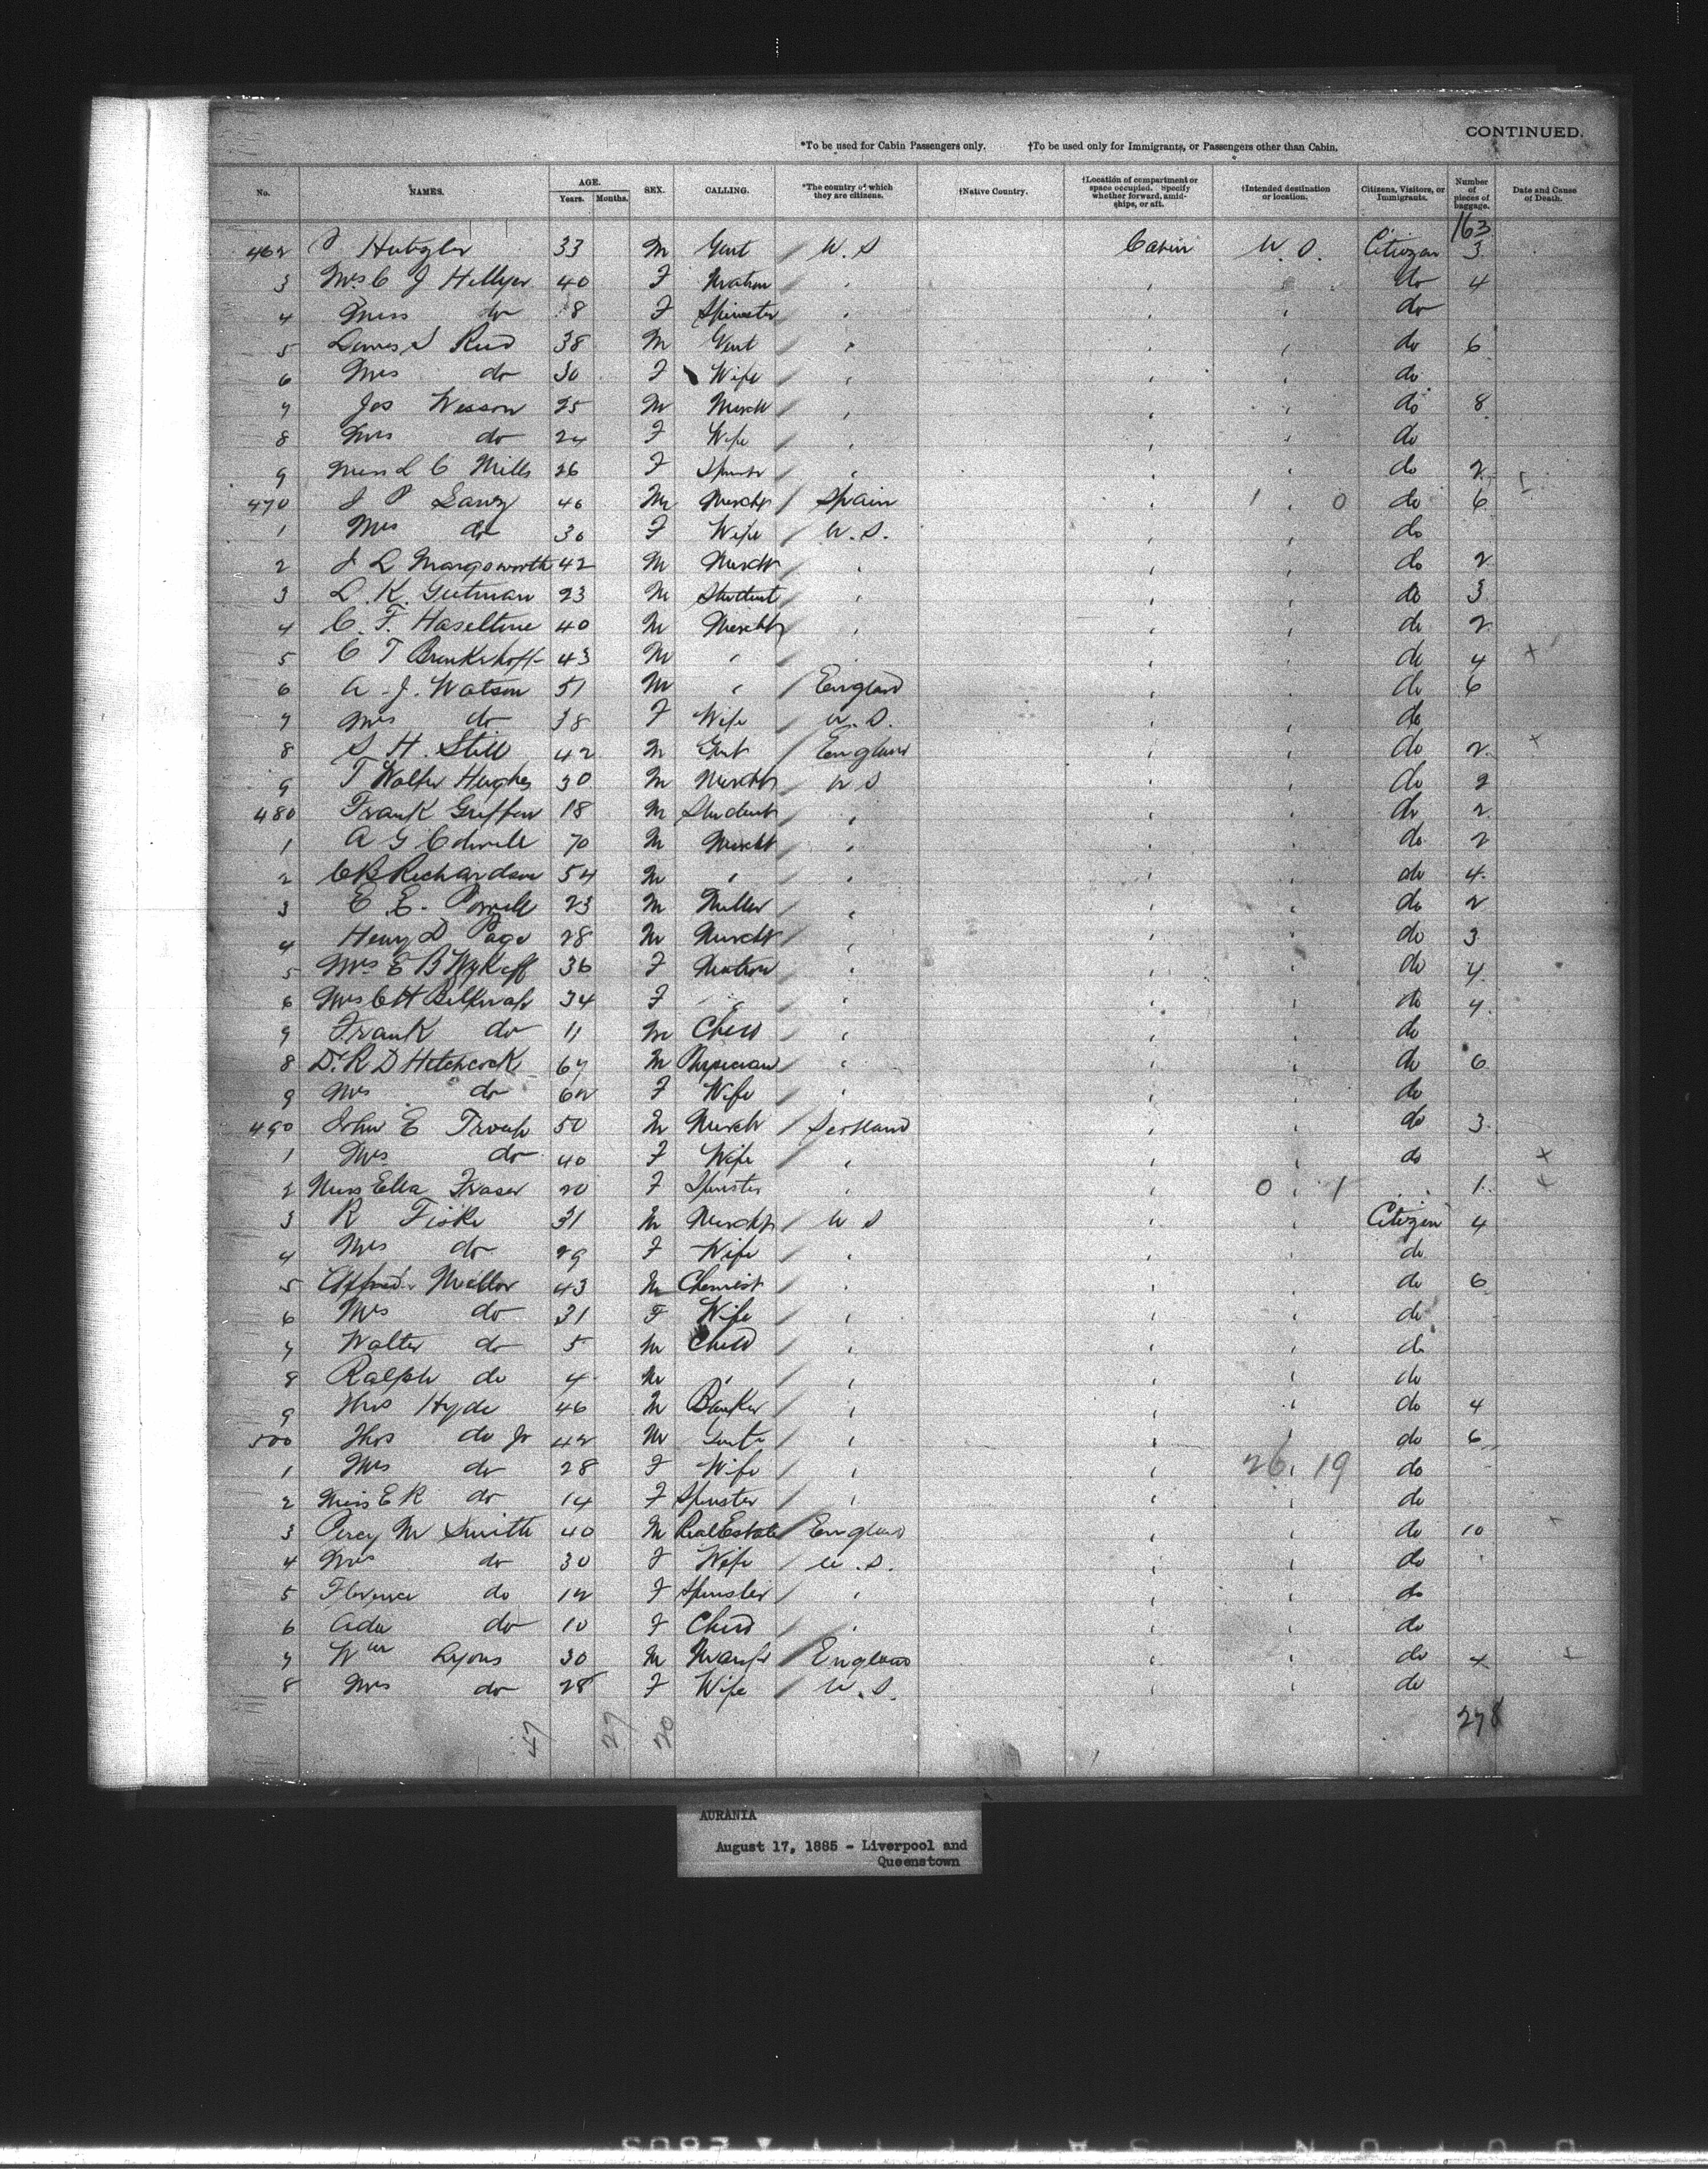 CONTINUED.
*To be used for Cabin Passengers only. †To be used only for Immigrants, or Passengers other than Cabin.
No. NAMES. AGE. Years. Months. SEX. CALLING. *The country of which they are citizens. †Native Country. †Location of compartment or space occupied. Specify whether forward, amidships, or aft. †Intended destination or location. Citizens, Visitors, or Immigrants. Number of pieces of baggage. Date and Cause of Death.
163
462 Hutzler 33 M Gent U.S Cabin U.S. Citizen 3
3 Mrs C J Hillyer 40 F Matron do 4
4 Miss do 18 F Spinster do
5 Reid 38 M Gent do 6
6 Mrs do 30 F Wife do
7 Jos Wesson 25 M Mercht do 8
8 Mrs do 24 F Wife do
9 Miss L C Mills 26 F Spinstr do 2
470 J P 46 M Mercht Spain 1 0 do 6
1 Mrs do 30 F Wife U.S. do
2 J L 42 M Mercht do 2
3 D. K. Gutman 23 M Student do 3
4 C. F. Haseltine 40 M Mercht do 2
5 C T Brinkerhoff 43 M " do 4
6 A. J. Watson 51 M " England do 6
7 Mrs do 38 F Wife U.S. do
8 S. H. Still 42 M Gent England do 2
9 T Walter Hughes 30 M Mercht U S do 2
480 Frank Griffen 18 M Student do 2
1 A G 70 M Mercht do 2
2 C B Richardson 54 M " do 4
3 E. E. 23 M Miller do 2
4 Henry D Page 28 M Mercht do 3
5 Mrs E B Wykoff 36 F Matron do 4
6 Mrs C H Belknap 34 F " do 4
7 Frank do 11 M Child do
8 Dr. R D Hitchcock 67 M Physician do 6
9 Mrs do 62 F Wife do
490 John E Troup 50 M Mercht Scotland do 3
1 Mrs do 40 F Wife do
2 Miss Ella Fraser 20 F Spinster 0 1 1
3 R Fiske 31 M Mercht U S Citizen 4
4 Mrs do 29 F Wife do
5 Alfred Mellor 43 M Chemist do 6
6 Mrs do 31 F Wife do
7 Walter do 5 M Child do
8 Ralph do 4 M " do
9 Thos Hyde 46 M Banker do 4
500 Thos do Jr 42 M Gent do 6
1 Mrs do 28 F Wife 26 19 do
2 Miss E R do 14 F Spinster do
3 Percy M Smith 40 M Real Estate England do 10
4 Mrs do 30 F Wife U.S. do
5 Florence do 12 F Spinster do
6 Ada do 10 F Child do
7 Wm Lyons 30 M Manfr England do 4
8 Mrs do 28 F Wife U.S. do
47 27 20 278
AURANIA
August 17, 1885 - Liverpool and
Queenstown